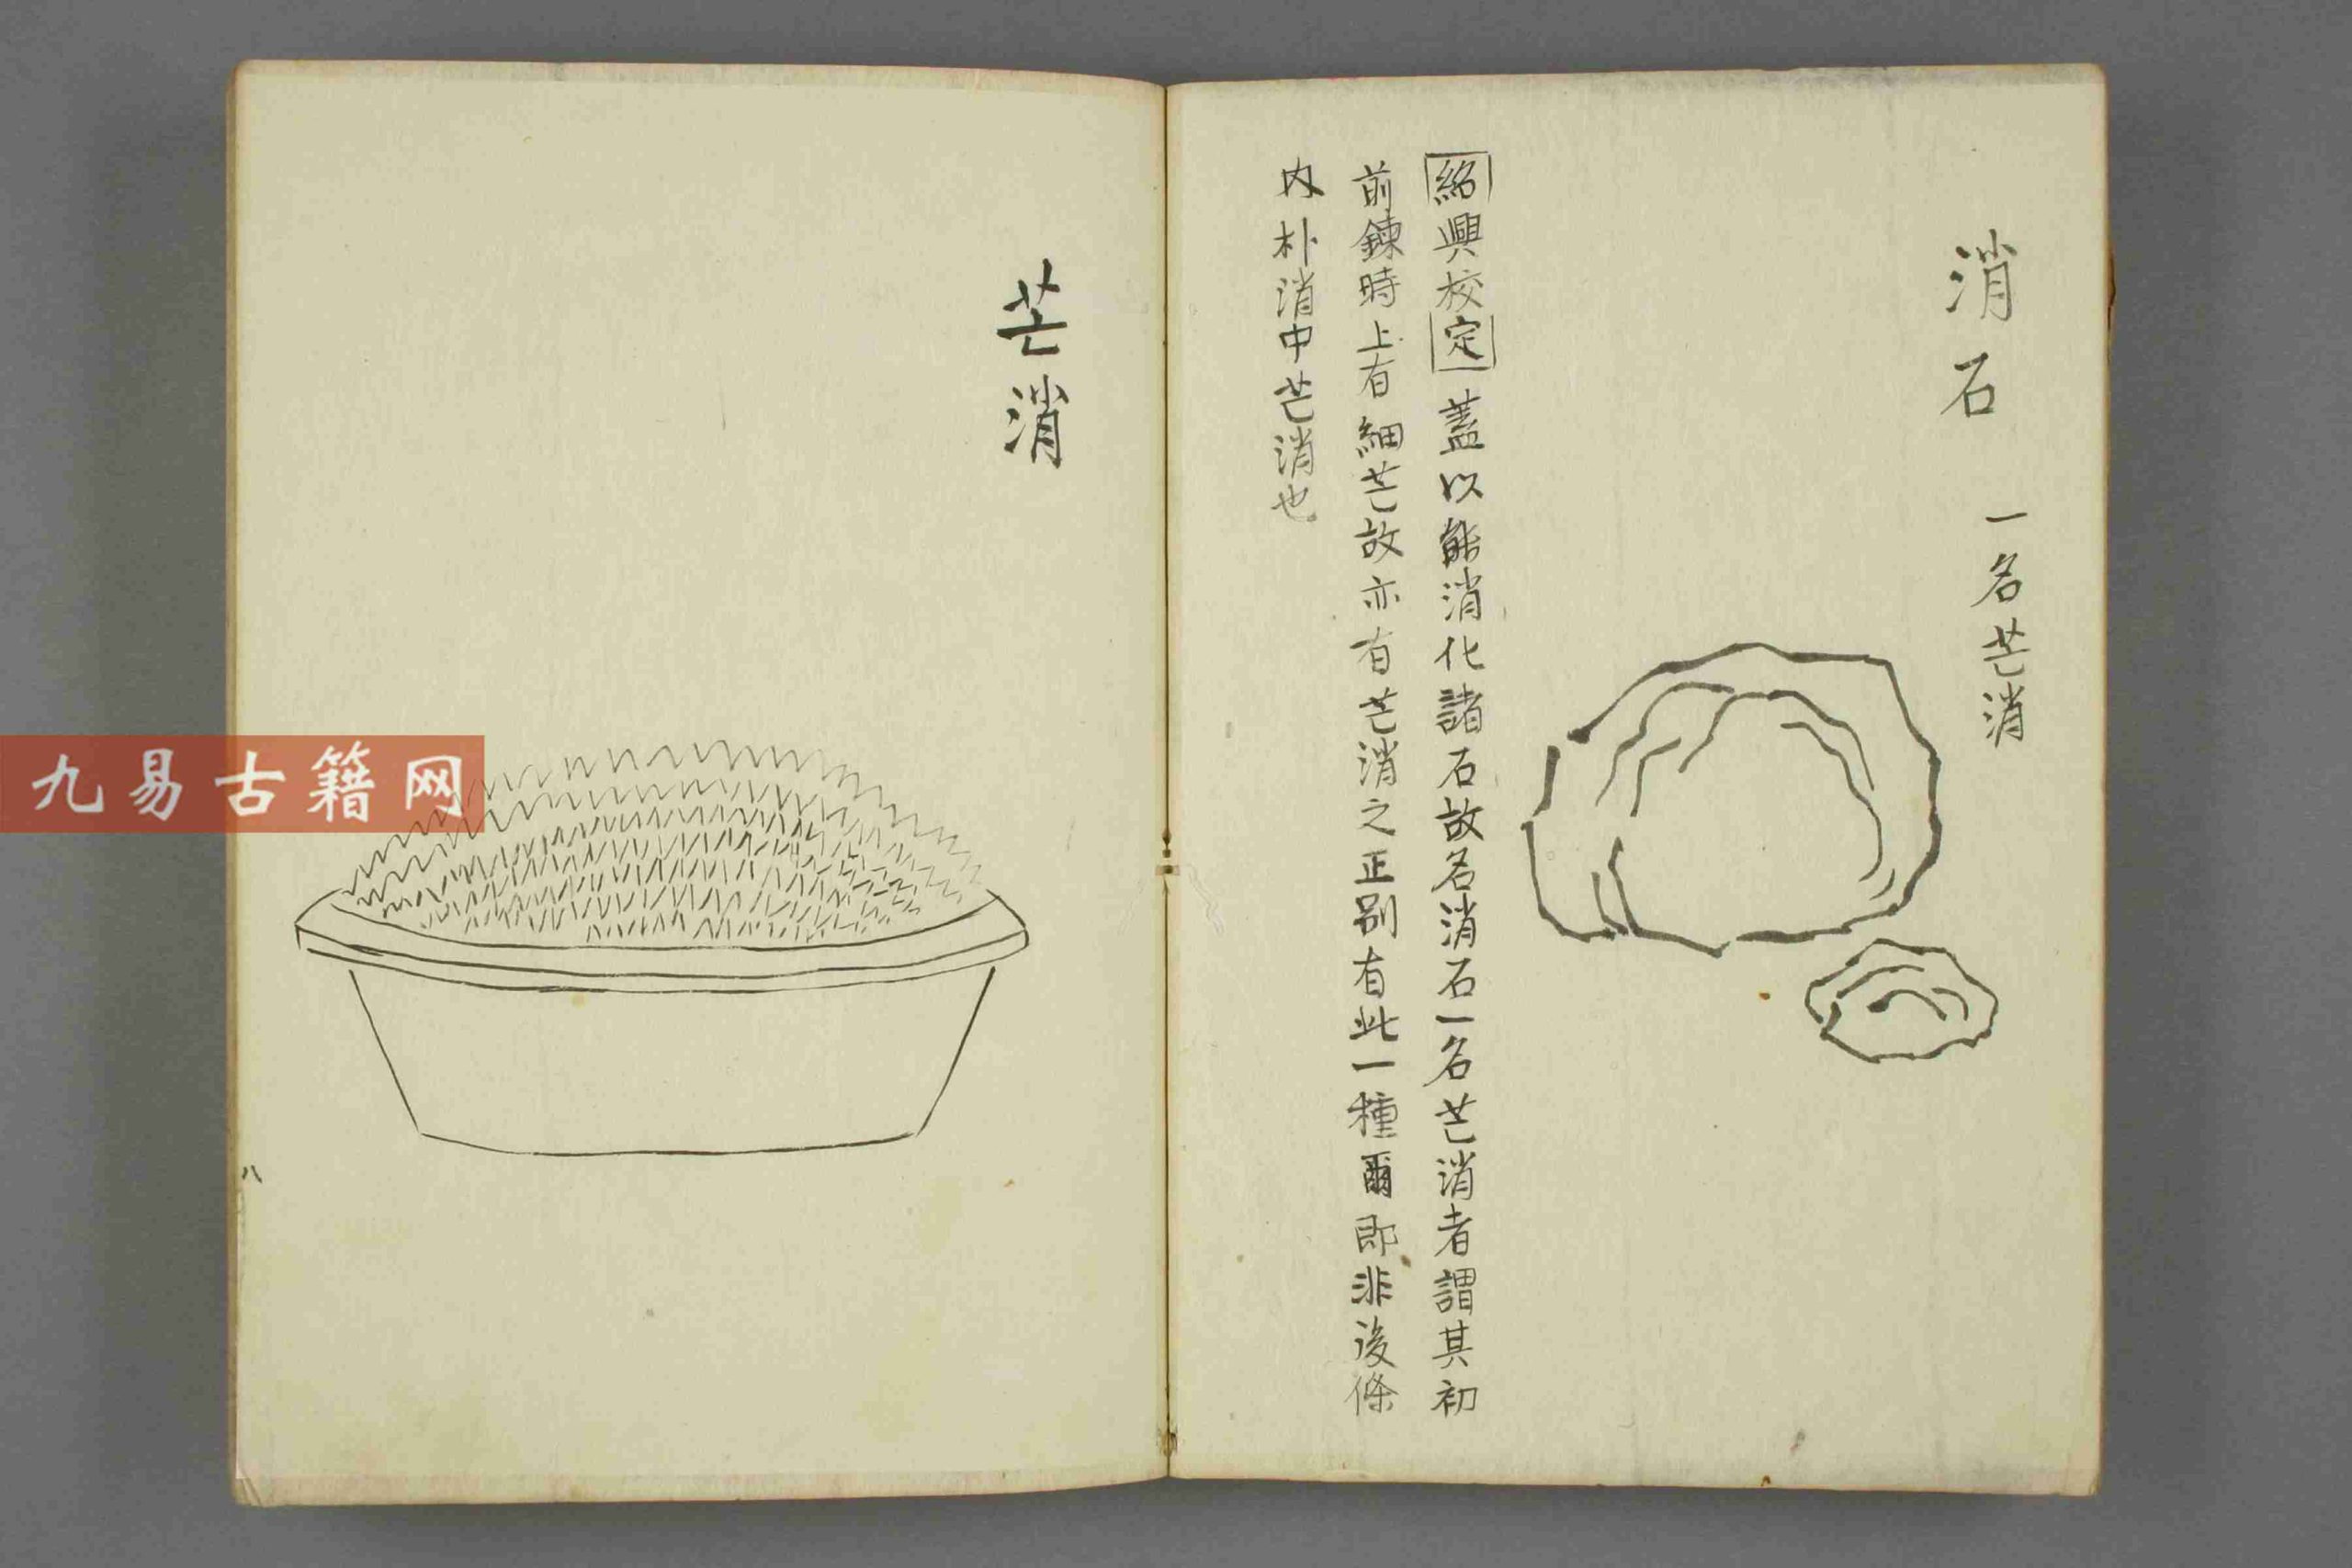 消石 一名芒消
紹興校定 蓋以能消化諸石故名消石一名芒消者謂其初
前鍊時上有細芒故亦有芒消之正別有此一種爾即非後條
内朴消中芒消也
芒消
八
九易古籍网